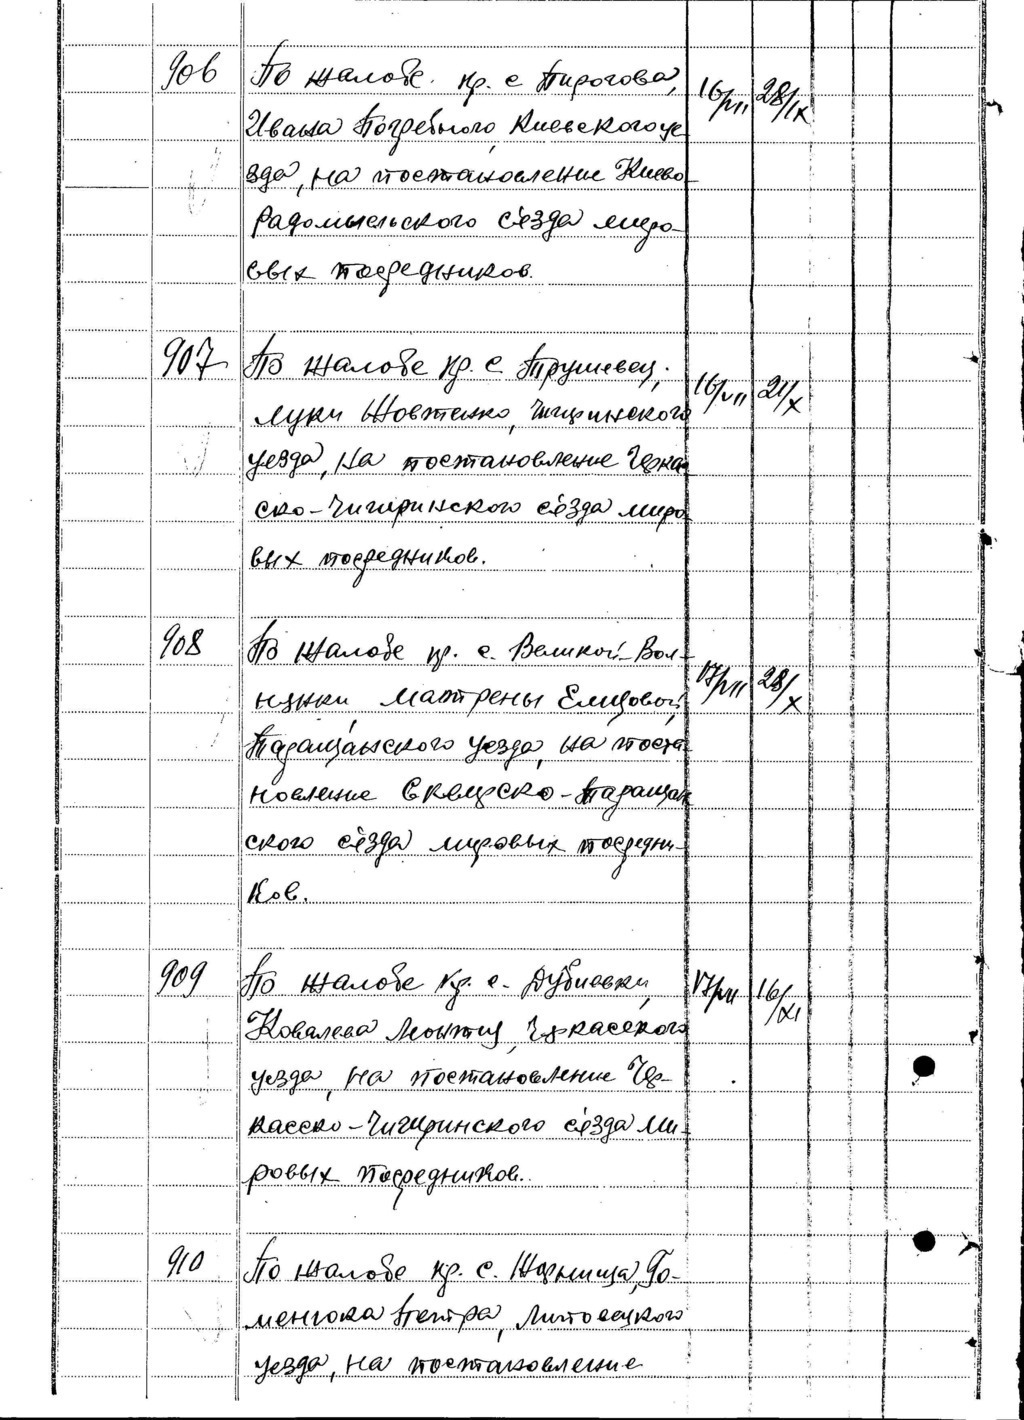 906 По жалобе кр. с Пирогова, 16/VII 28/IX
Ивана Погребного, Киевского уе
зда, на постановление Киево
Радомысльского съезда миро-
вых посредников.
907 По жалобе кр. с. Трушевец, 16/VII 21/X
Луки Шовтенко, Чигиринского
уезда, на постановление Черкас
ско-Чигиринского съезда миро
вых посредников.
908 По жалобе кр. с. Великой-Вол- 17/VII 28/X
нянки Матрены
Таращанского уезда, на поста
новление Сквирско-Таращан
ского съезда мировых посредни-
ков.
909 По жалобе кр. с. Дубиевки, 17/VII 16/XI
Ковалева Леонтия, Черкасского
уезда, на постановление Чер-
касско-Чигиринского съезда ми-
ровых посредников.
910 По жалобе кр. с. Жорнища, Го-
менюка Петра, Липовецкого
уезда, на постановление